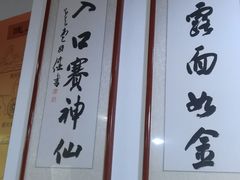 露面如金
入口賽神仙